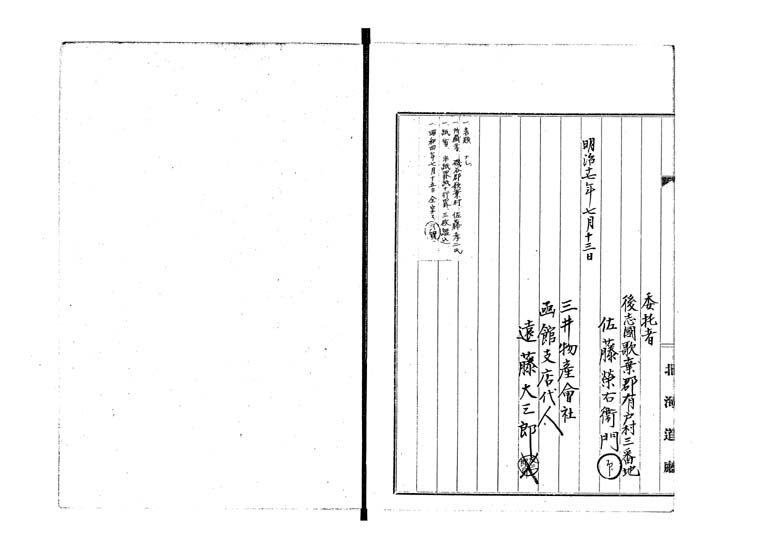 委托者
後志國歌棄郡有戸村三番地
佐藤榮右衛門 印
明治十七年七月十三日
三井物産會社
函館支店代人
遠藤大三郎
一表題 ナシ
一所蔵者 磯谷郡歌棄村 佐藤孝一氏
一紙質 半紙罫紙十行罫 三枚
一昭和四年七月十五日
北海道廳